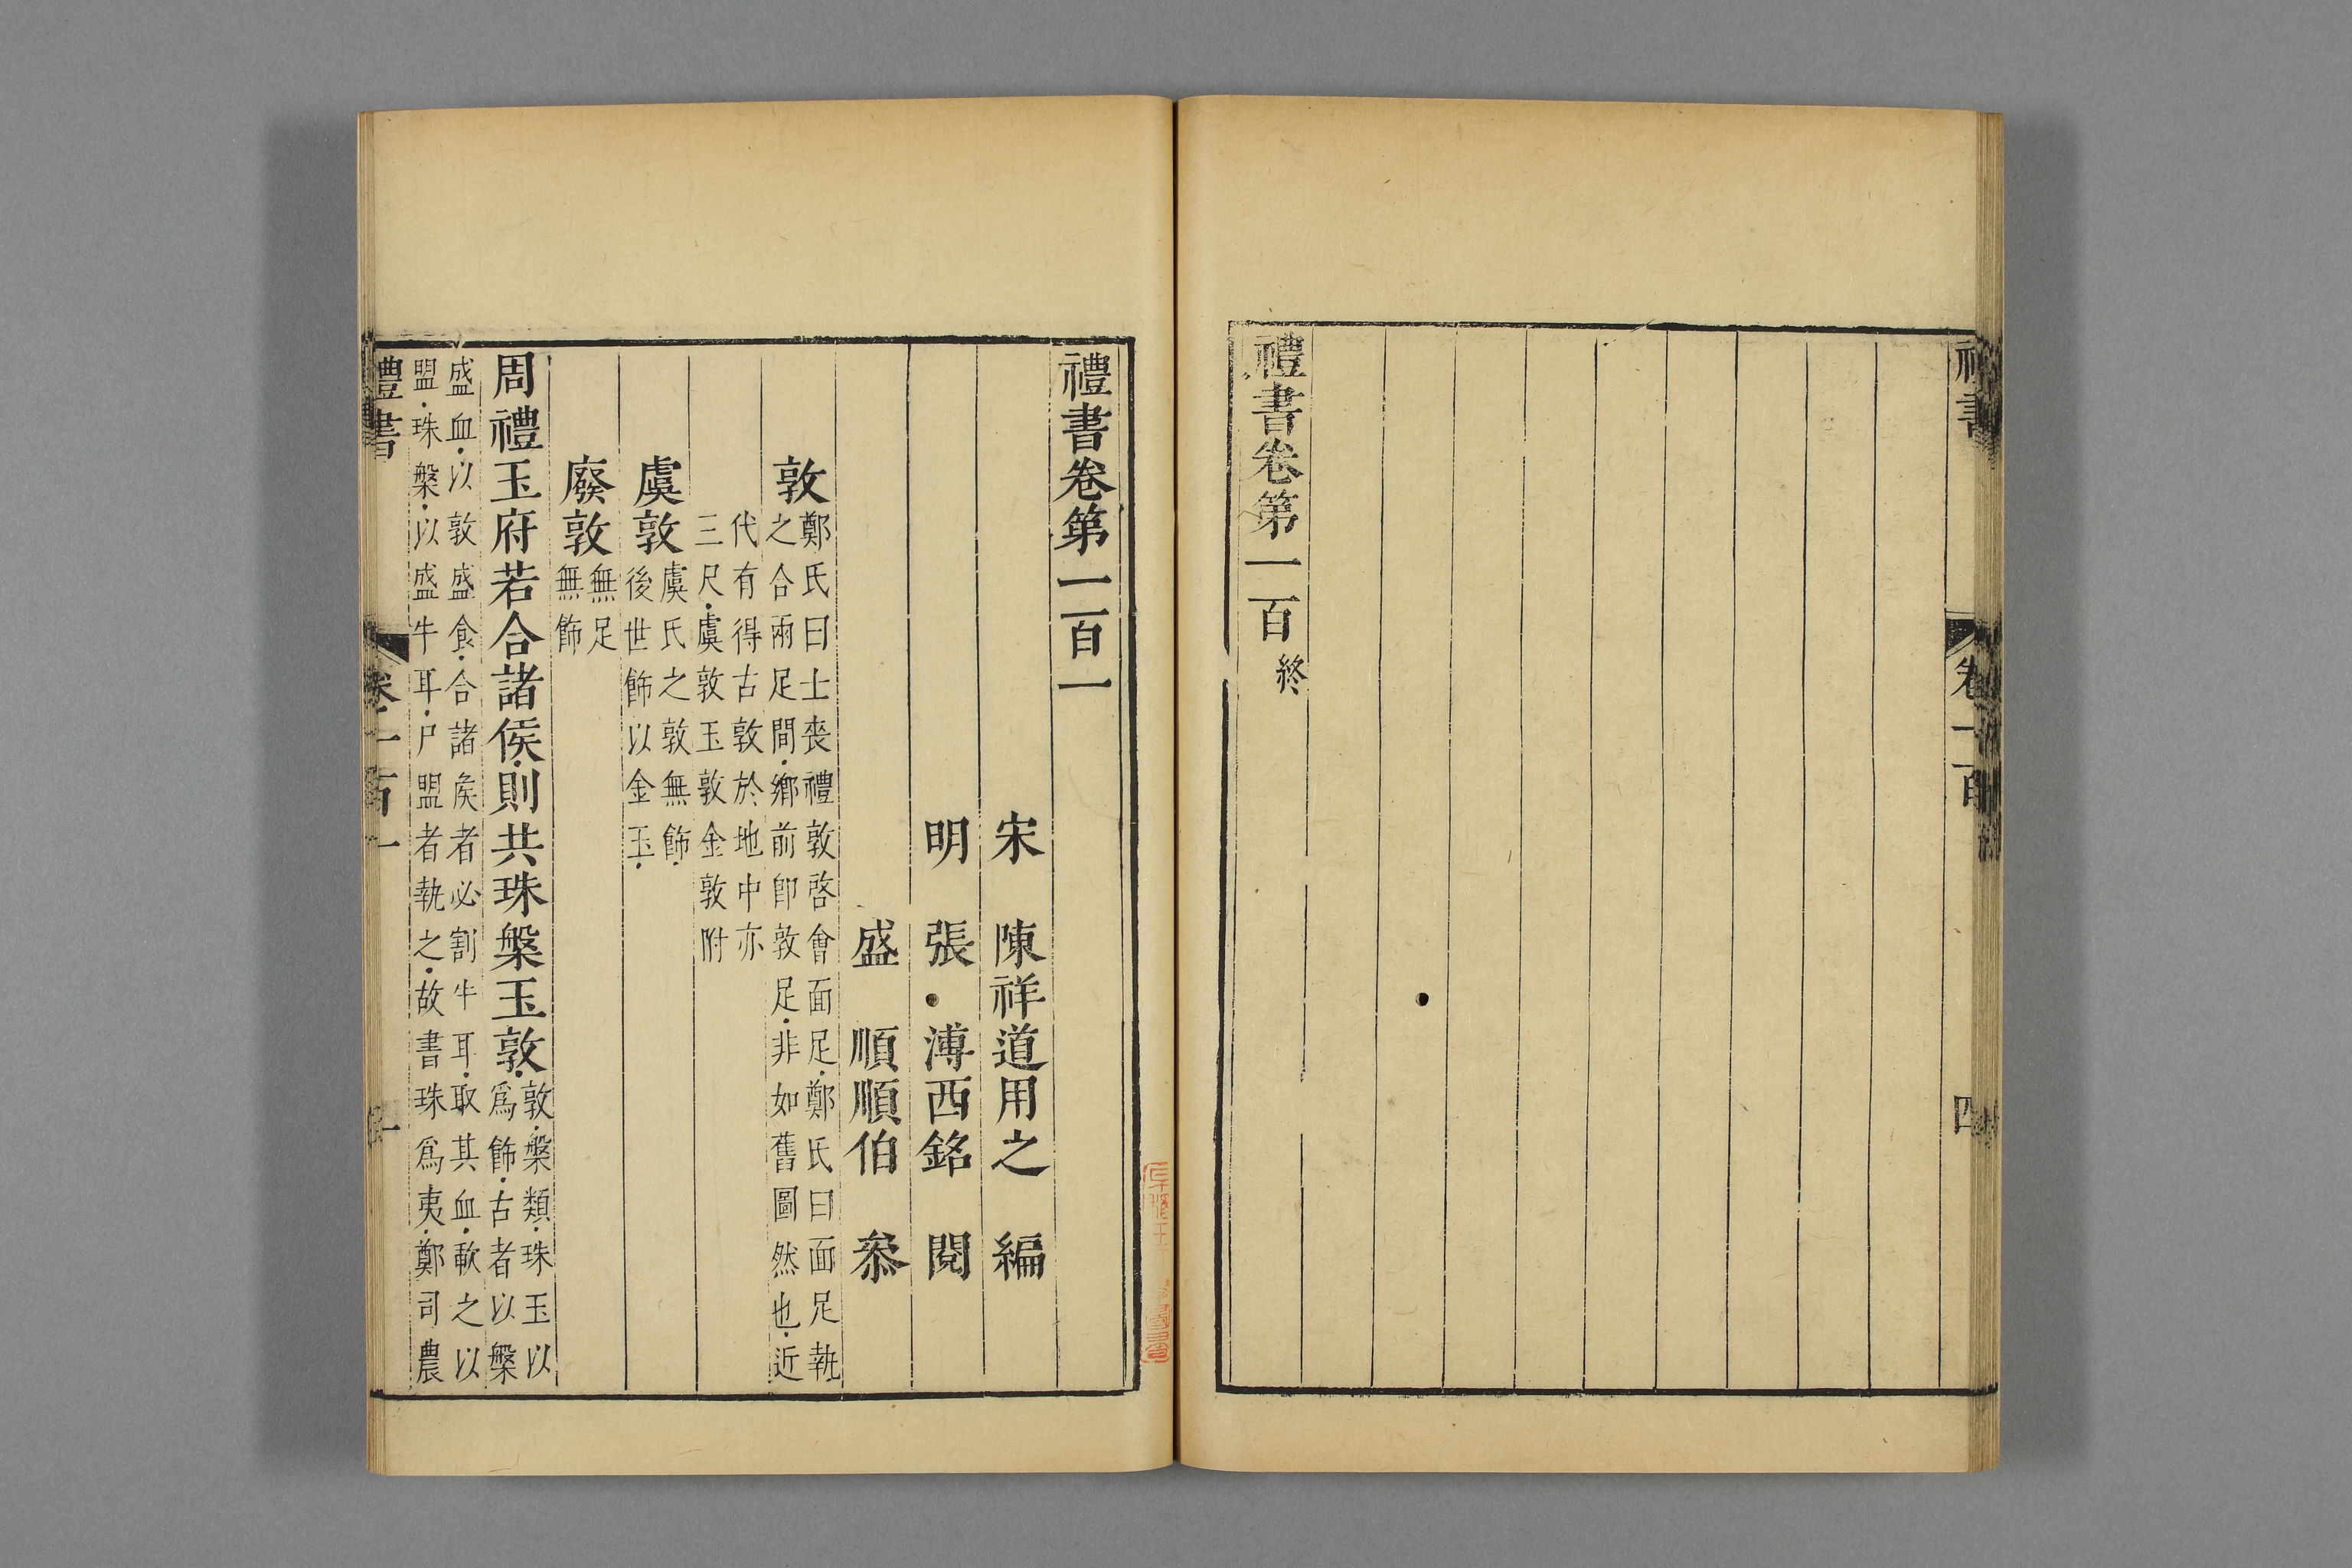 卷一百
四
禮書卷第一百終
禮書卷第一百一
宋 陳祥道用之 編
明 張溥西銘 閱
盛 順順伯 叅
敦鄭氏曰士喪禮敦啓會面足鄭氏曰面足執
之合兩足間鄉前卽敦足非如舊圖然也近
代有得古敦於地中亦
三尺虞敦玉敦金敦附
虞敦虞氏之敦無飾
後世飾以金玉
廢敦無足
無飾
周禮玉府若合諸侯則共珠槃玉敦敦槃類珠玉以
爲飾古者以槃
盛血以敦盛食合諸矦者必割牛耳取其血歃之以
盟珠槃以盛牛耳尸盟者執之故書珠爲夷鄭司農
禮書
卷一百一
一